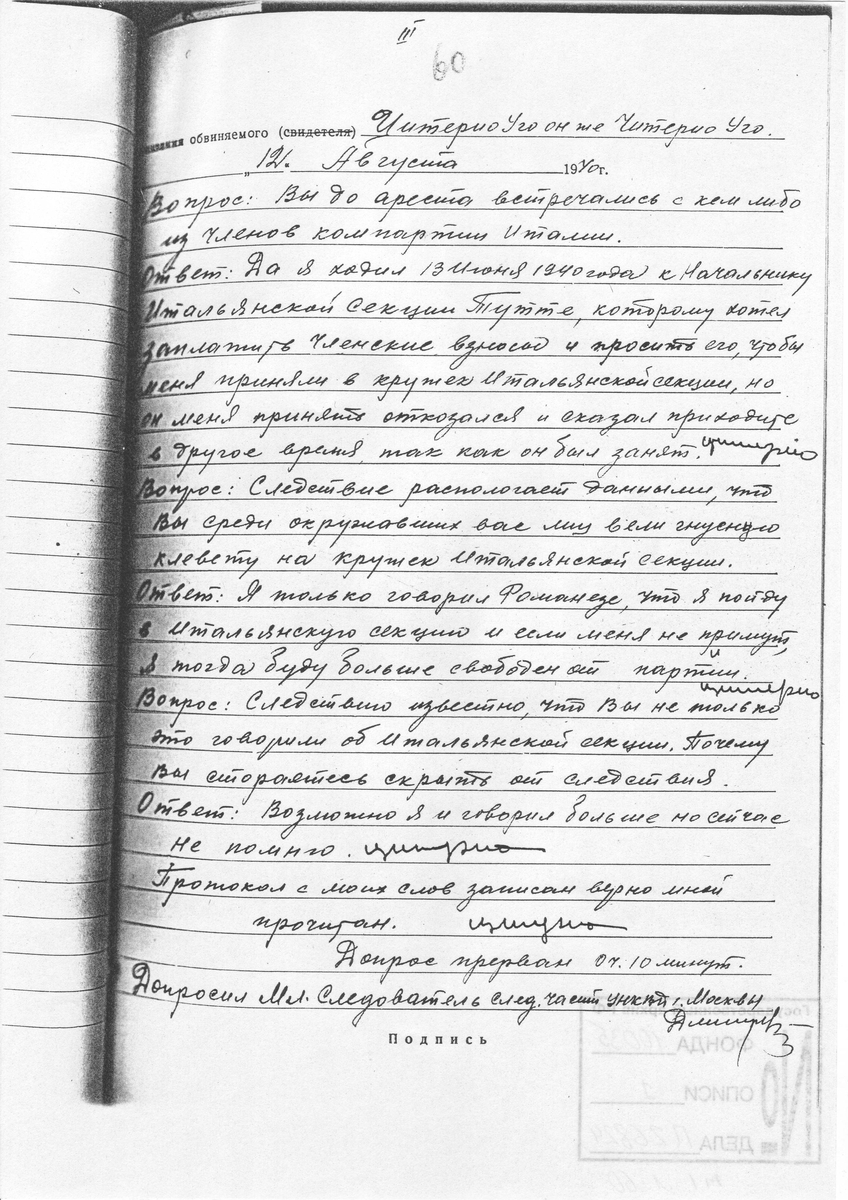 III
60
обвиняемого (свидетеля) Цитерио Уго он же Читерио Уго.
„12". Августа 1940г.
Вопрос: Вы до ареста встречались с кем либо
из членов компартии Италии.
Ответ: Да я ходил 13 Июня 1940 года к Начальнику
Итальянской секции Тутте, которому хотел
заплатить членские взносы и просить его, чтобы
меня приняли в кружек Итальянской секции, но
он меня принять отказался и сказал приходите
в другое время так как он был занят. цитерио
Вопрос: Следствие распологает данными, что
Вы среди окружавших вас лиц вели гнусную
клевету на кружек Итальянской секции.
Ответ: Я только говорил Романезе, что я пойду
в Итальянскую секцию и если меня не примут,
я тогда буду больше свободен от партии.
цитерио
Вопрос: Следствию известно, что Вы не только
это говорили об Итальянской секции. Почему
Вы стораетесь скрыть от следствия.
Ответ: Возможно я и говорил больше но сейчас
не помню. цитерио
Протокол с моих слов записан верно мной
прочитан. цитерио
Допрос прерван 0 ч. 10 минут.
Допросил Мл. Следователь след. части УНКВД г. Москвы
Подпись
№
ФОНДА 10035
ОПИСИ 1
ДЕЛА П26824